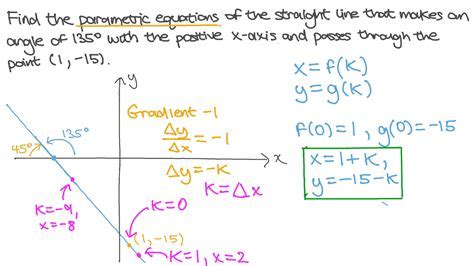 Find the parametric equations of the straight line that makes an
angle of 135° with the positive x-axis and passes through the
point (1,-15).
x = f(K)
y = g(K)
f(0)=1, g(0)=-15
x = 1+K,
y = -15-K
y
x
Gradient -1
Δy/Δx = -1
Δy = -K
K = Δx
45°
135°
K=-9,
x=-8
K=0
(1,-15)
K=1, x=2